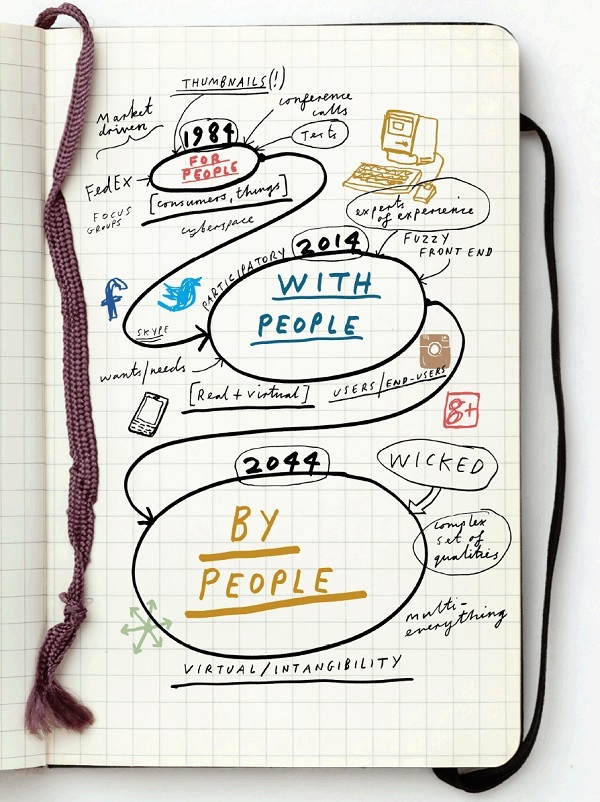 THUMBNAILS(!)
Market
driven
conference
calls
1984
Tests
FOR
PEOPLE
FedEx
[consumers, things]
FOCUS
GROUPS
cyberspace
experts
of experience
2014
FUZZY
FRONT END
PARTICIPATORY
WITH
PEOPLE
f
SKYPE
wants/needs
[Real + virtual]
USERS/END-USERS
g+
2044
WICKED
BY
PEOPLE
complex
set of
qualities
multi-
everything
VIRTUAL/INTANGIBILITY